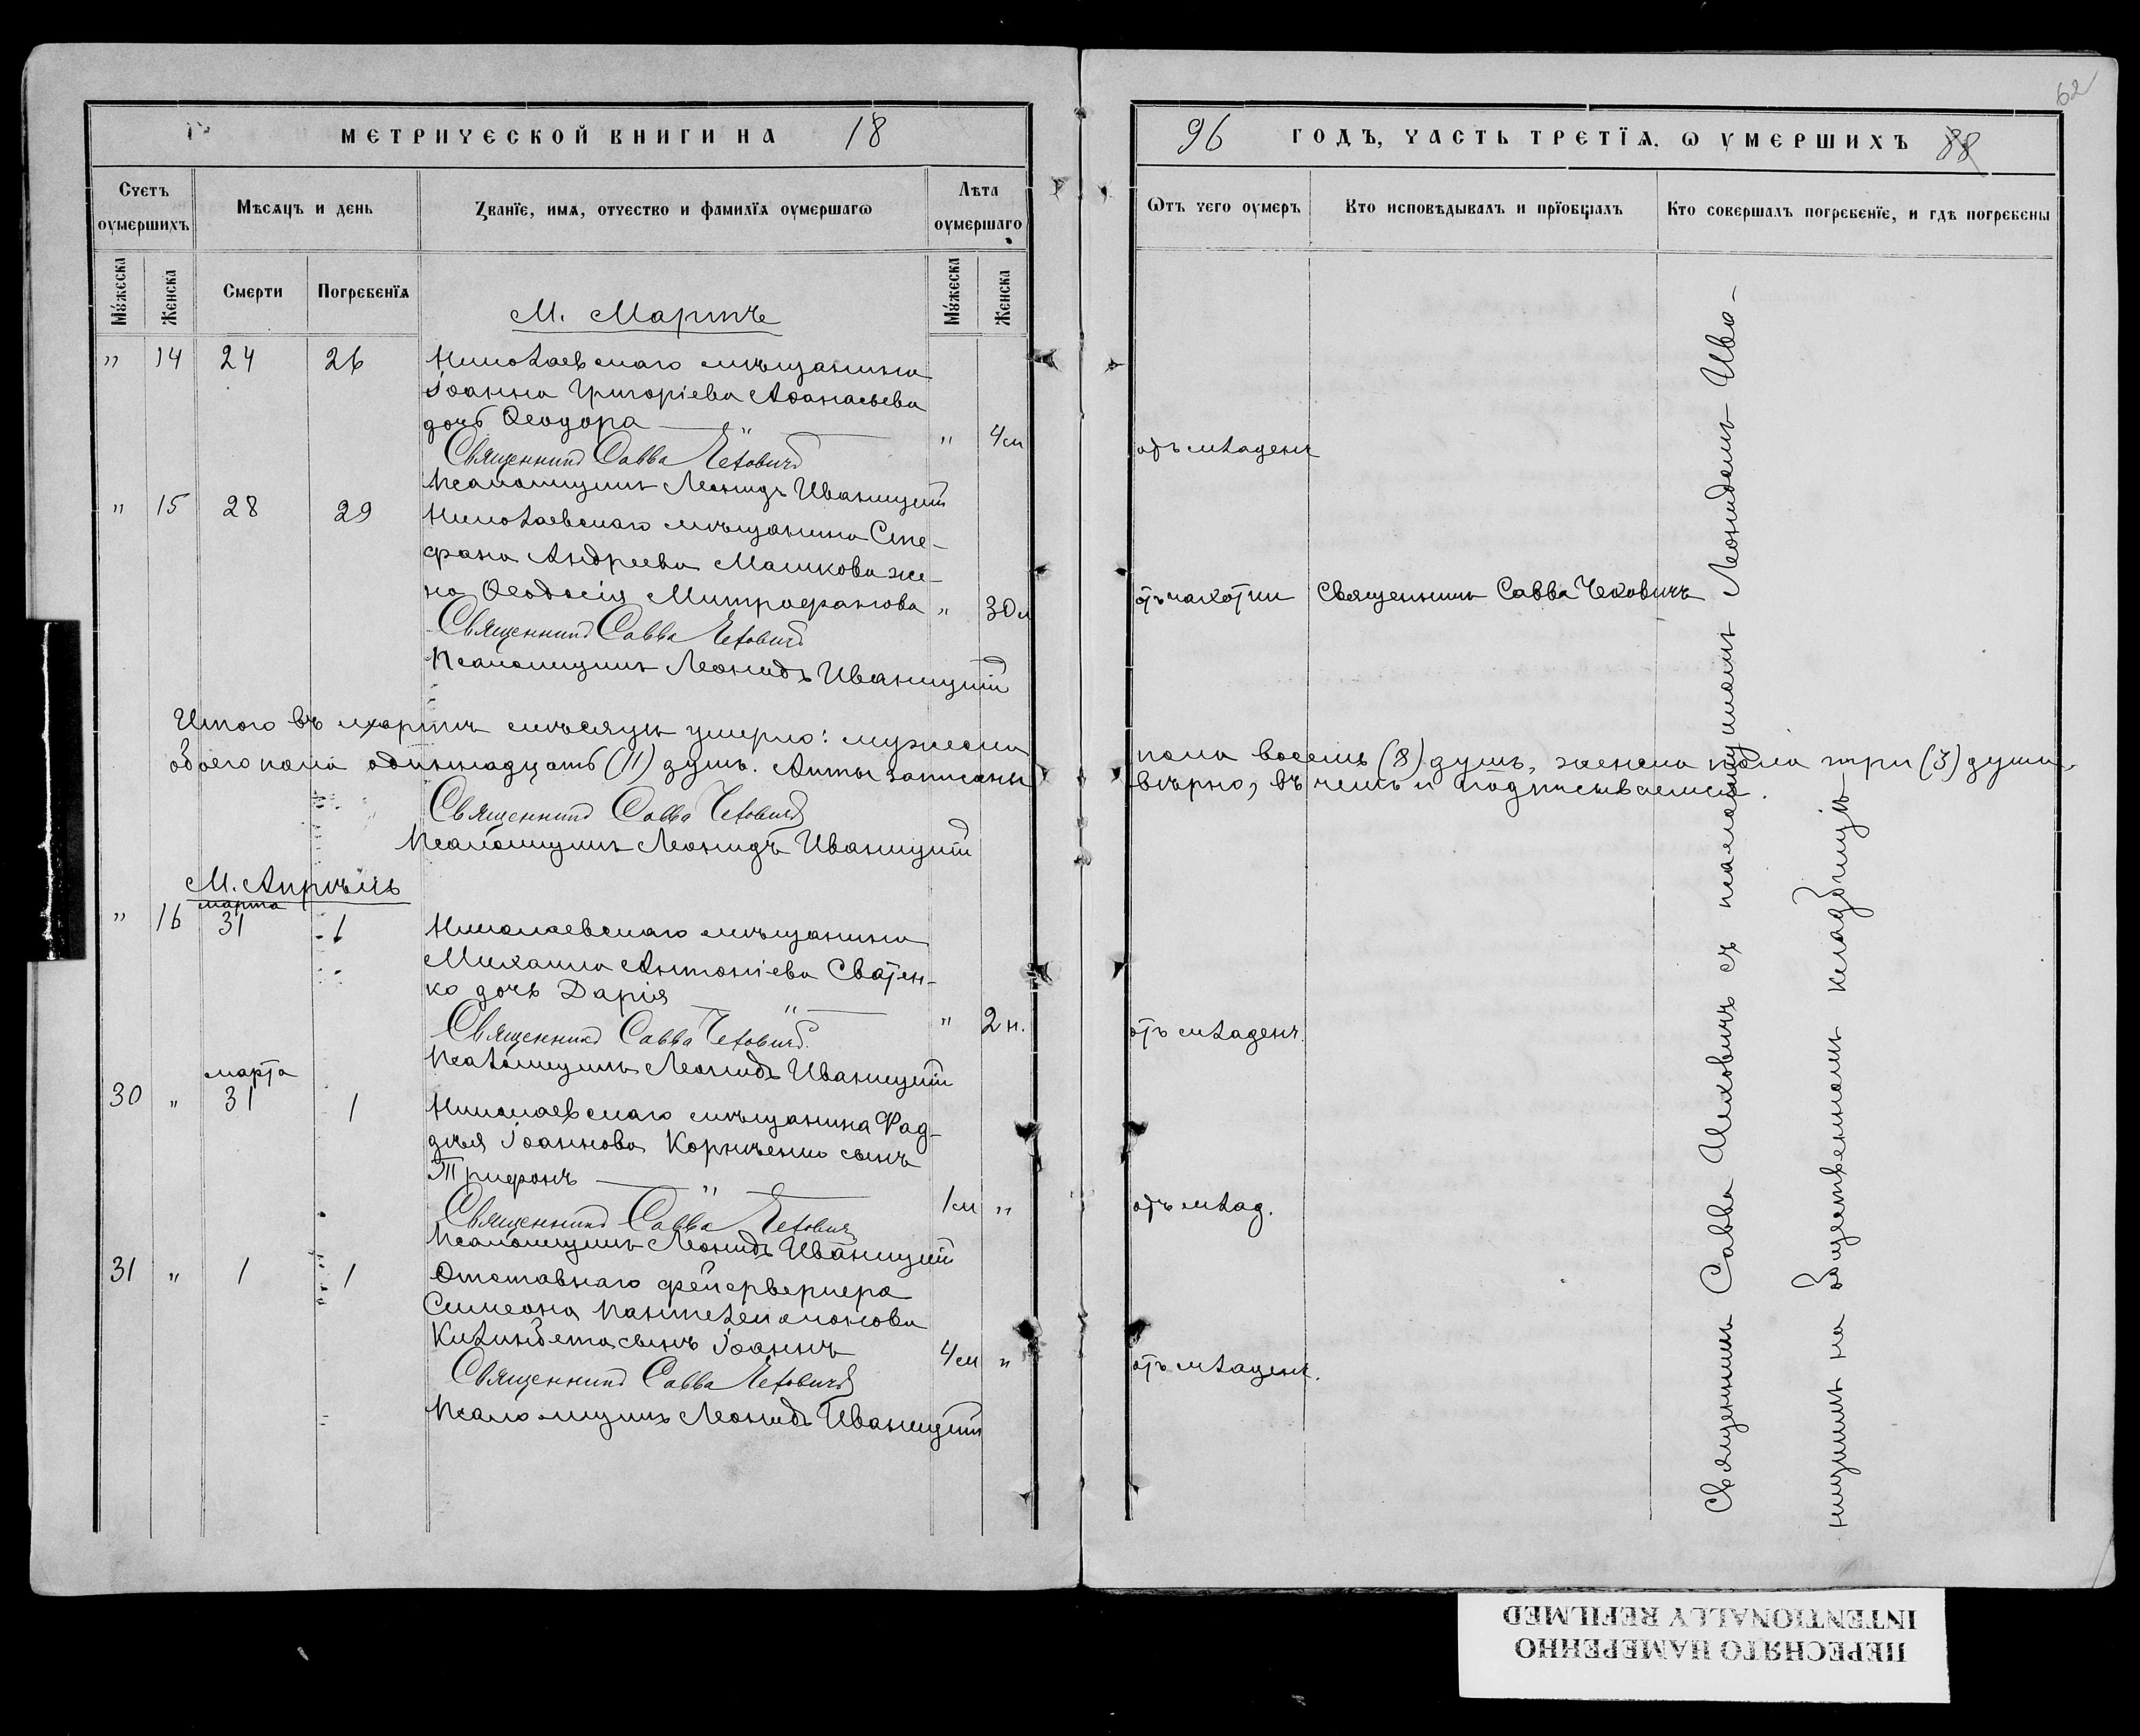 МЕТРИЧЕСКОЙ КНИГИ НА 18
Счетъ оумершихъ
Мѣсяцъ и день
Званїе, имя, отчество и фамилїя оумершагѡ
Лѣта оумершаго
Мꙋжеска
Женска
Смерти
Погребенїя
Мꙋжеска
Женска
М. Мартъ
" 14 24 26 Николаевскаго мѣщанина
Іоанна Григоріева Аѳанасьева
дочь Ѳеодора — " — " 4 м
Священникъ Савва Чехович
Псаломщикъ Леонидъ Иваницкій
" 15 28 29 Николаевскаго мѣщанина Сте-
фана Андреева Машкова же-
на Ѳеодосія Митрофанова " 30 л
Священникъ Савва Чехович
Псаломщикъ Леонидъ Иваницкій
Итого въ мартѣ мѣсяцѣ умерло: мужеска
обоего пола одиннадцать (11) душъ. Акты записаны
Священникъ Савва Чехович
Псаломщикъ Леонидъ Иваницкій
М. Апрѣль
марта
" 16 31 1 Николаевскаго мѣщанина
Михаила Антоніева Сватен-
ко дочь Дарія — " — " 2 н.
Священникъ Савва Чехович
Псаломщикъ Леонидъ Иваницкій
марта
30 " 31 1 Николаевскаго мѣщанина Фад-
дѣя Іоаннова Корнѣенко сынъ
Трифонъ — " — 1 м "
Священникъ Савва Чехович
Псаломщикъ Леонидъ Иваницкій
31 " 1 1 Отставнаго фейерверкера
Симеона Пантелеимонова
сынъ Іоаннъ 4 м "
Священникъ Савва Чехович
Псаломщикъ Леонидъ Иваницкій
62
96 ГОДЪ, ЧАСТЬ ТРЕТЇЯ, Ѡ УМЕРШИХЪ 88
Ѿтъ чего оумеръ
Кто исповѣдывалъ и прїобщалъ
Кто совершалъ погребенїе, и гдѣ погребены
отъ младенч
отъ чахотки Священникъ Савва Чеховичъ
пола восемь (8) душъ, женска пола три (3) души.
вѣрно, въ чемъ и подписываемся.
отъ младенч.
отъ млад.
отъ младенч.
Священникъ Савва Чеховичъ съ псаломщикомъ Леонидомъ Ива-
ницкимъ на общественномъ кладбищѣ
ПЕРЕСНЯТО НАМЕРЕННО
INTENTIONALLY REFILMED